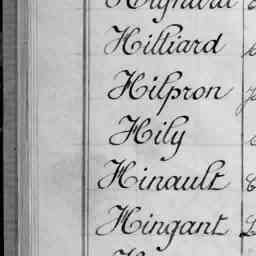 Hilliard
Hilpron
Hily
Hinault
Hingant